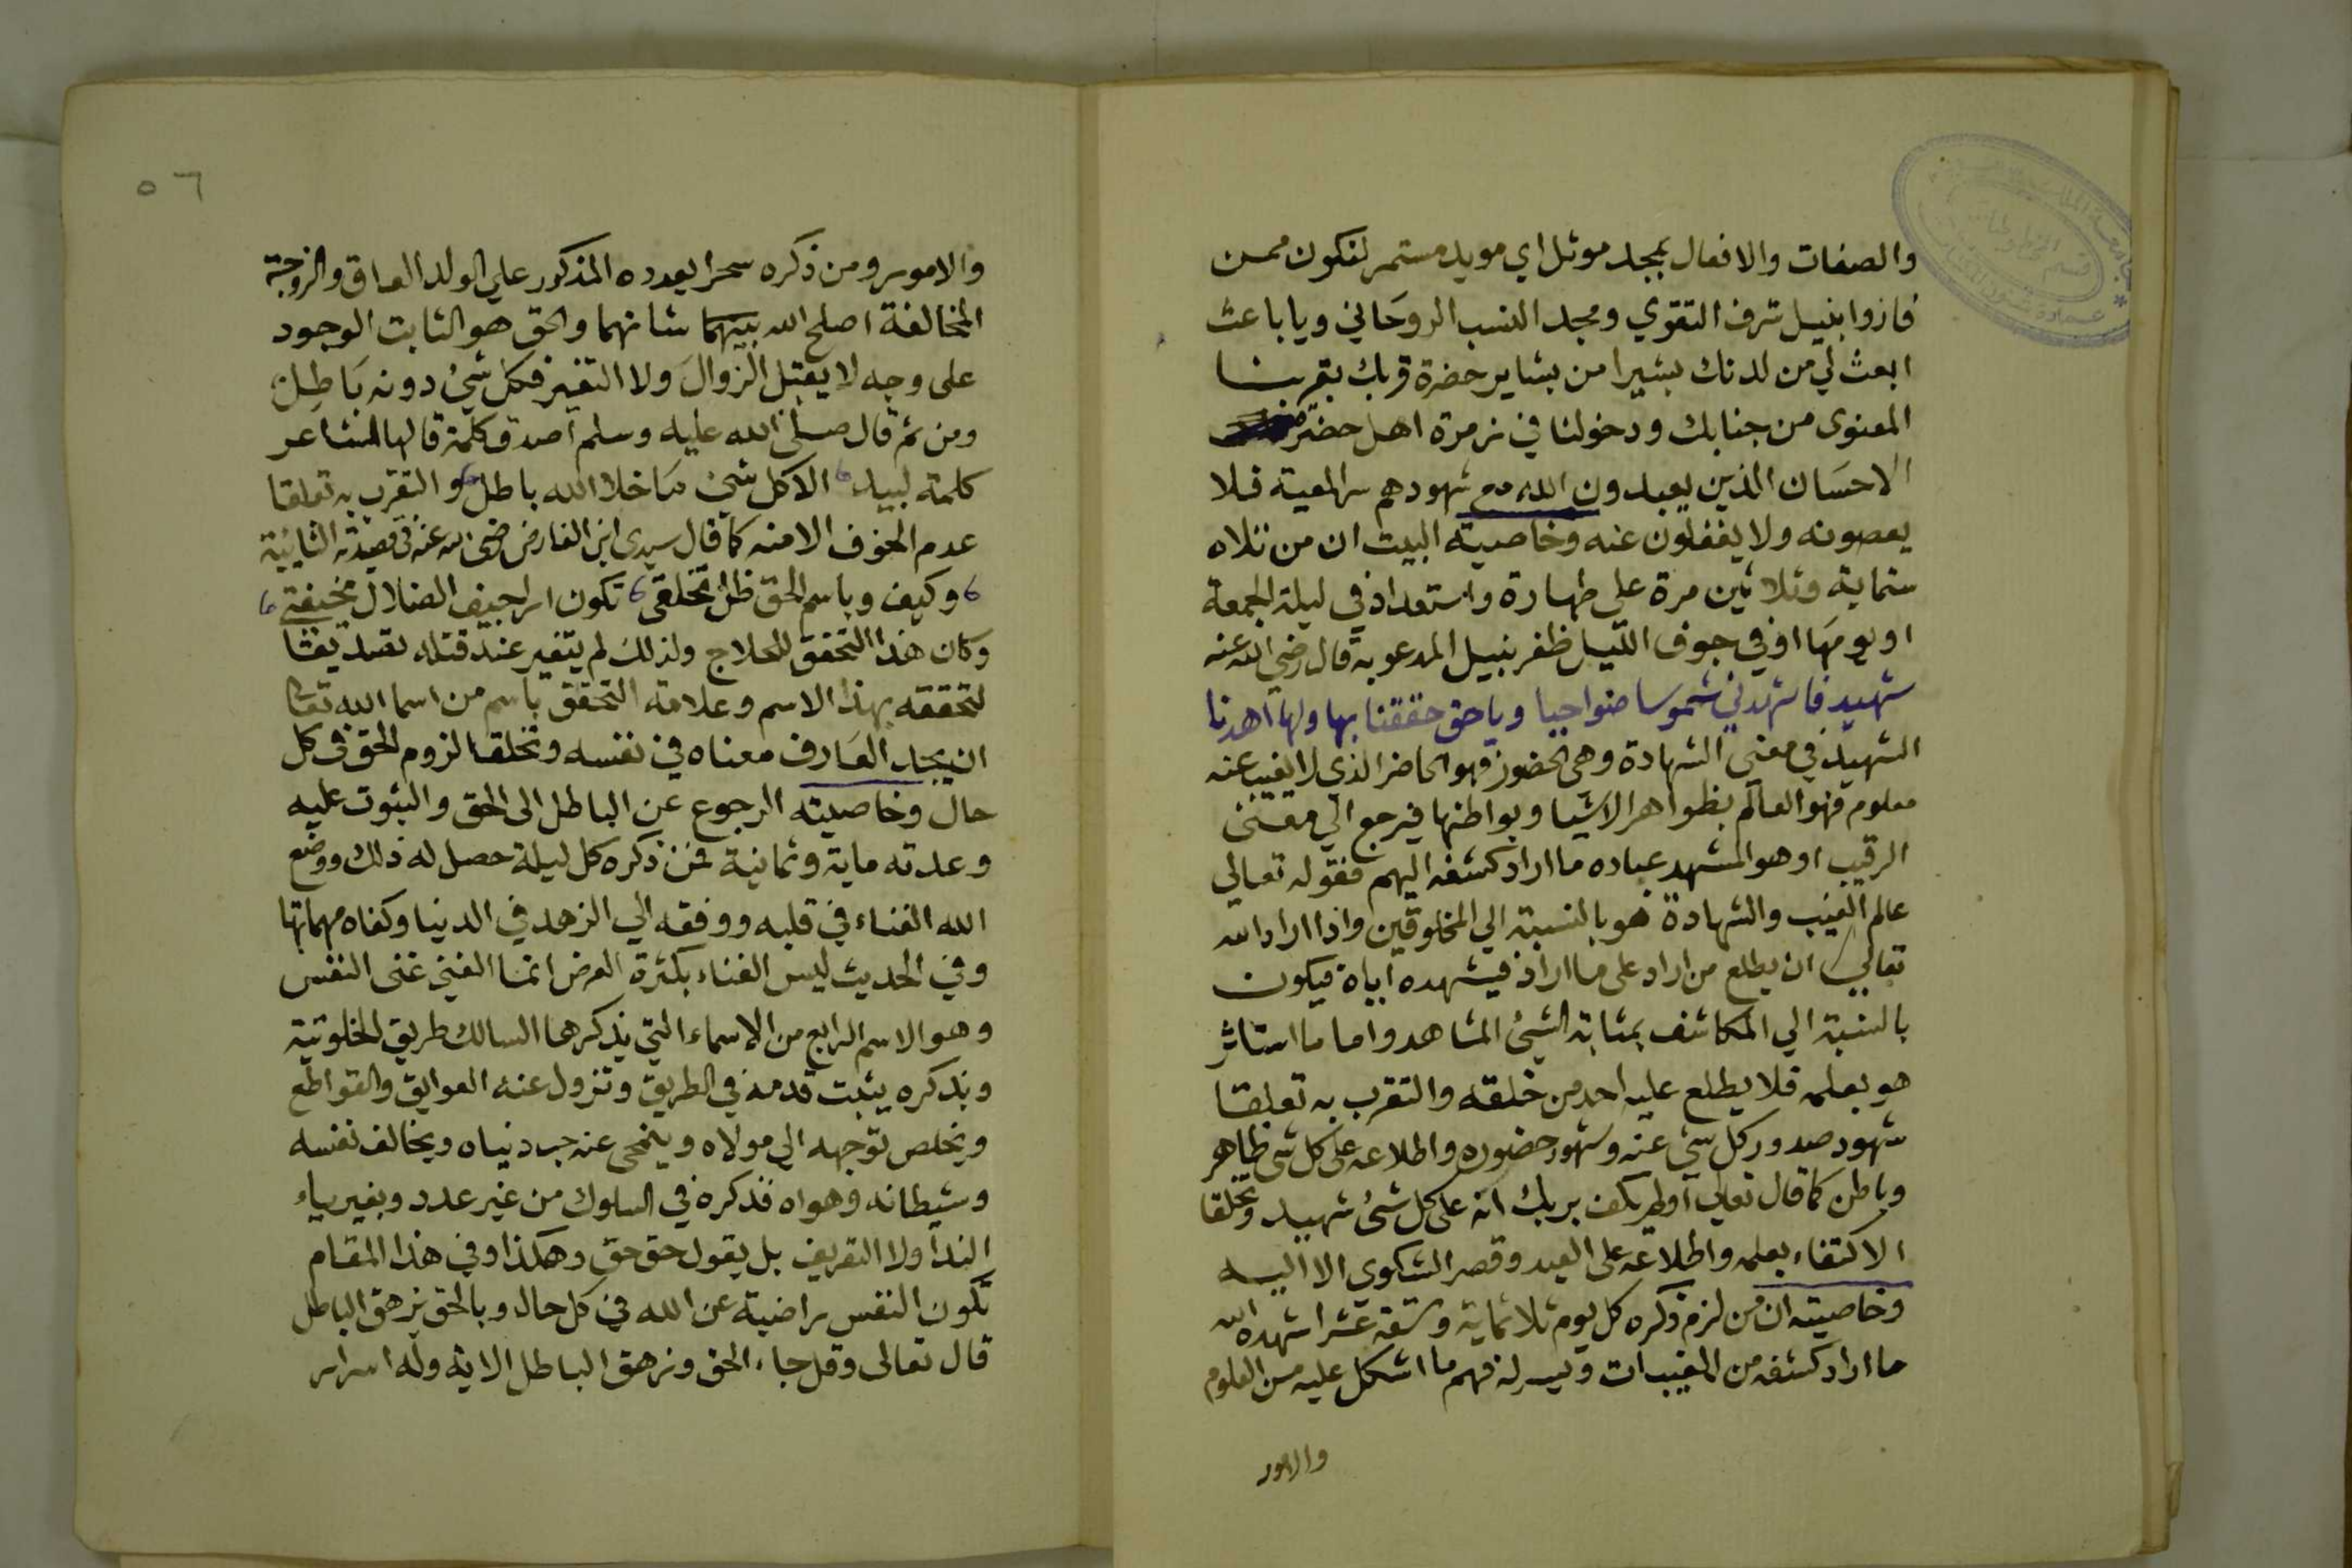 والصفات والافعال بمجد موثل اي مويد مستمر لنكون ممن
فازوا بنيل شرف التقوي ومجد النسب الروحاني ويا باعث
ابعث لي من لدنك بشيرا من بشاير حضرة قربك بقربنا
المعنوى من جنابك ودخولنا في زمرة اهل حضرة
الاحسان الذين يعبدون الله مع شهودهم سر المعية فلا
يعصونه ولا يغفلون عنه وخاصية البيت ان من تلاه
ستماية وثلاثين مرة علي طهارة واستعداد في ليلة الجمعة
او يومها او في جوف الليل ظفر بنيل المدعو به قال رضي الله عنه
شهيد فاشهدني شموسا ضواحيا ويا حق حققنا بها ولها اهدنا
الشهيد في معني الشهادة وهي الحضور فهو الحاضر الذي لا يغيب عنه
معلوم فهو العالم بظواهر الاشيا وبواطنها فيرجع الي معني
الرقيب او هو المشهد عباده ما اراد كشفه اليهم فقوله تعالي
عالم الغيب والشهادة هو بالنسبة الي المخلوقين واذا اراد الله
تعالي ان يطلع من اراد على ما اراد فيشهده اياه فيكون
بالنسبة الي المكاشف بمثابة الشيئ المشاهد واما ما استاثر
هو بعلمه فلا يطلع عليه احد من خلقه والتقرب به تعلقا
شهود صدور كل شي عنه وشهود حضوره واطلاعه على كل شي ظاهر
وباطن كما قال تعالي اولم يكف بربك انه على كل شئ شهيد وتخلقا
الاكتفاء بعلمه واطلاعه على العبد وقصر الشكوي الا اليه
وخاصيته ان من لزم ذكره كل يوم ثلاثماية وتسعة عشر اشهده الله
ما اراد كشفه من المغيبات ويسر له فهم ما اشكل عليه من العلوم
والامور
٥٦
والامور ومن ذكره سحرا بعدده المذكور علي الولد العاق والزوجة
المخالفة اصلح الله بينهما شانهما والحق هو الثابت الوجود
على وجه لا يقبل الزوال ولا التغير فكل شئ دونه باطل
ومن ثم قال صلى الله عليه وسلم اصدق كلمة قالها الشاعر
كلمة لبيد الا كل شئ ما خلا الله باطل والتقرب به تعلقا
عدم الخوف الا منه كما قال سيدي ابن الفارض رضي الله عنه في قصيدته التائية
وكيف وباسم الحق ظل تخلقي تكون اراجيف الضلال مخيفتي
وكان هذا التحقق للحلاج ولذلك لم يتغير عند قتله تصديقا
لتحققه بهذا الاسم وعلامة التحقق باسم من اسما الله تعالى
ان يجد العارف معناه في نفسه وتخلقا لزوم الحق في كل
حال وخاصيته الرجوع عن الباطل الى الحق والثبوت عليه
وعدته ماية وثمانية فمن ذكره كل ليلة حصل له ذلك ووضع
الله الغناء في قلبه ووفقه الي الزهد في الدنيا وكفاه مهماتها
وفي الحديث ليس الغناء بكثرة العرض انما الغني غنى النفس
وهو الاسم الرابع من الاسماء التي يذكرها السالك طريق الخلوتية
وبذكره يثبت قدمه في الطريق وتزول عنه العوايق والقواطع
ويخلص توجهه الي مولاه وينمحى عنه حب دنياه ويخالف نفسه
وشيطانه وهواه فذكره في السلوك من غير عدد وبغير ياء
الندا ولا التعريف بل يقول حق حق وهكذا وفي هذا المقام
تكون النفس راضية عن الله في كل حال وبالحق يزهق الباطل
قال تعالى وقل جاء الحق وزهق الباطل الاية وله اسرار